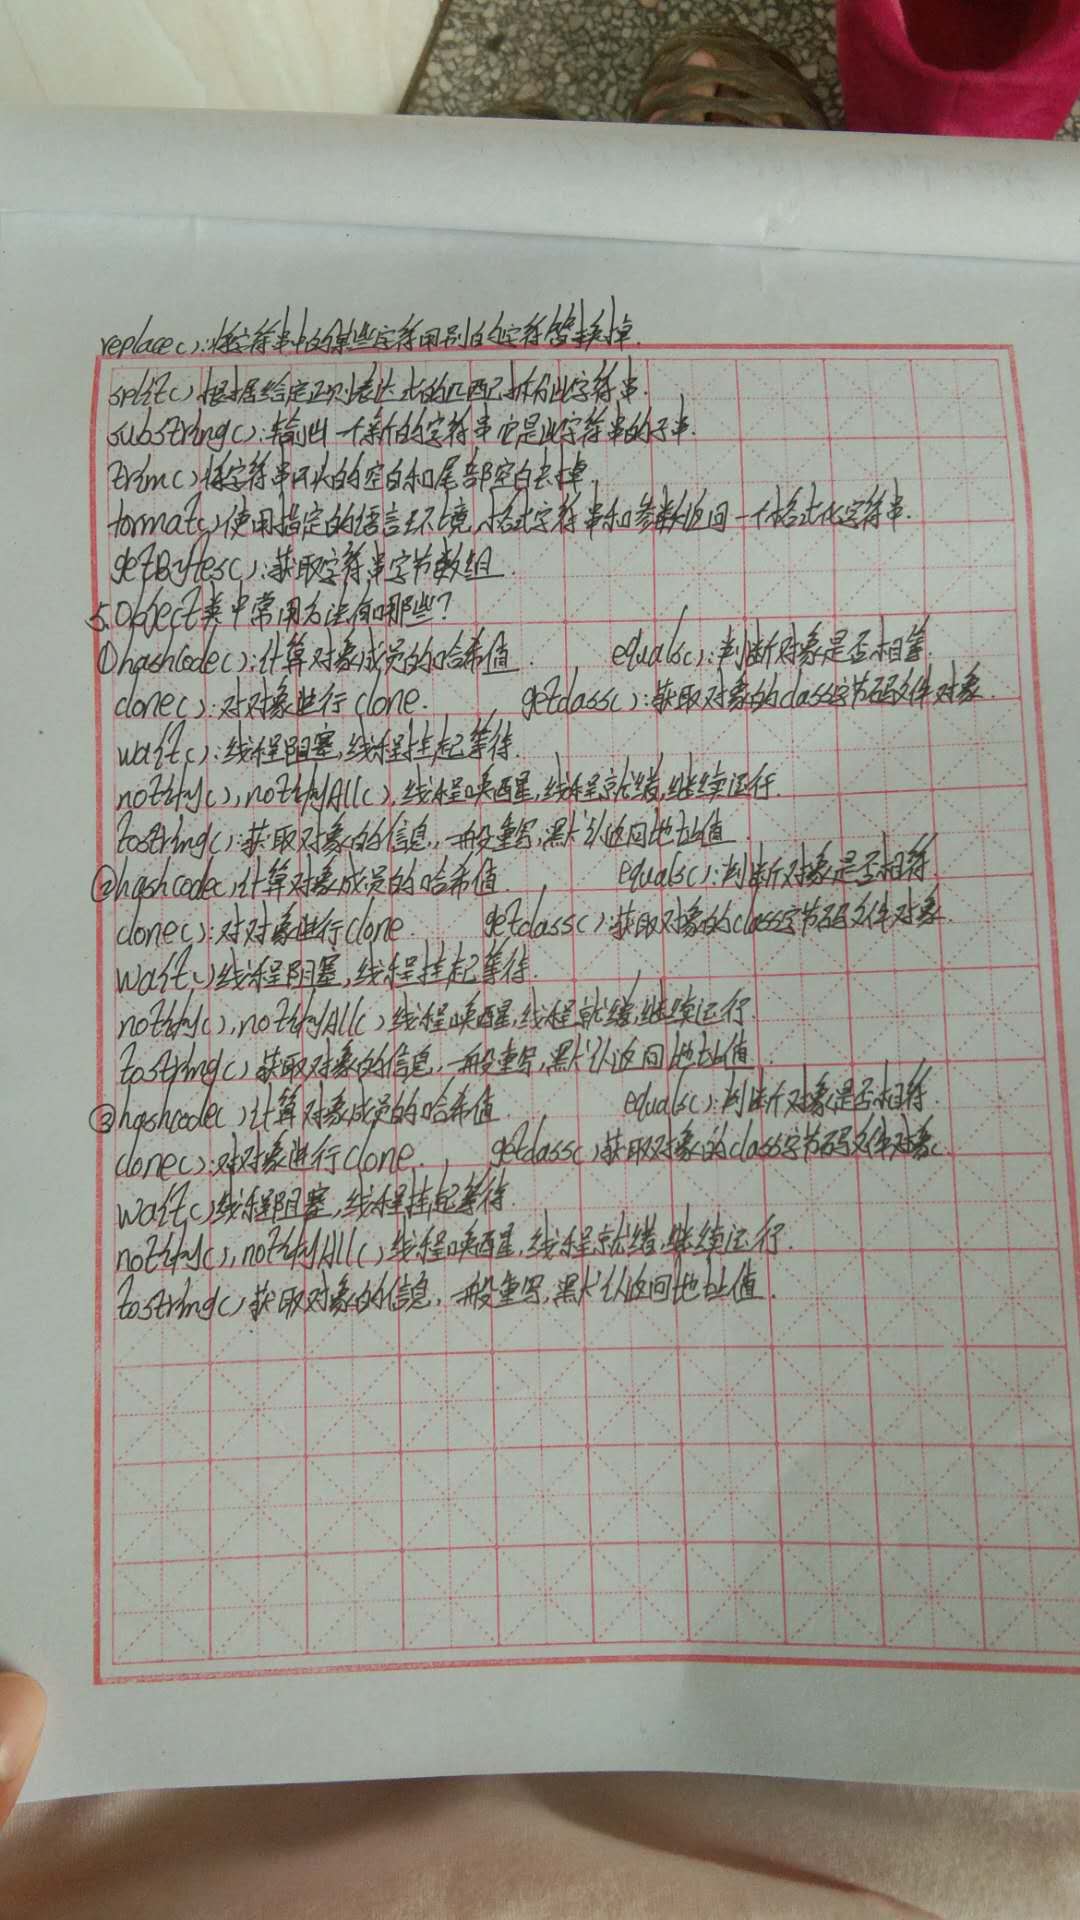 replace():将字符串中的某些字符用别的字符替换掉.
split()根据给定正则表达式的匹配拆分此字符串.
substring():输出一个新的字符串它是此字符串的子串.
trim()将字符串开头的空白和尾部空白去掉,
format()使用指定的语言环境,格式字符串和参数返回一个格式化字符串.
getBytes():获取字符串字节数组
5.Object类中常用方法有哪些?
①hashCode():计算对象成员的哈希值. equals():判断对象是否相等.
clone():对对象进行clone. getclass():获取对象的class字节码文件对象.
wait():线程阻塞,线程挂起等待.
notify(),notifyAll(),线程唤醒,线程就绪,继续运行.
tostring():获取对象的信息,一般重写,默认返回地址值
②hashcode()计算对象成员的哈希值. equals():判断对象是否相符.
clone():对对象进行clone. getclass():获取对象的class字节码文件对象.
wait()线程阻塞,线程挂起等待.
notify(),notifyAll()线程唤醒,线程就绪,继续运行.
tostring()获取对象的信息,一般重写,默认返回地址值.
③hashcode()计算对象成员的哈希值. equals():判断对象是否相符.
clone():对对象进行clone. getclass()获取对象的class字节码文件对象.
wait()线程阻塞,线程挂起等待.
notify(),notifyAll()线程唤醒,线程就绪,继续运行.
tostring()获取对象的信息,一般重写,默认返回地址值.